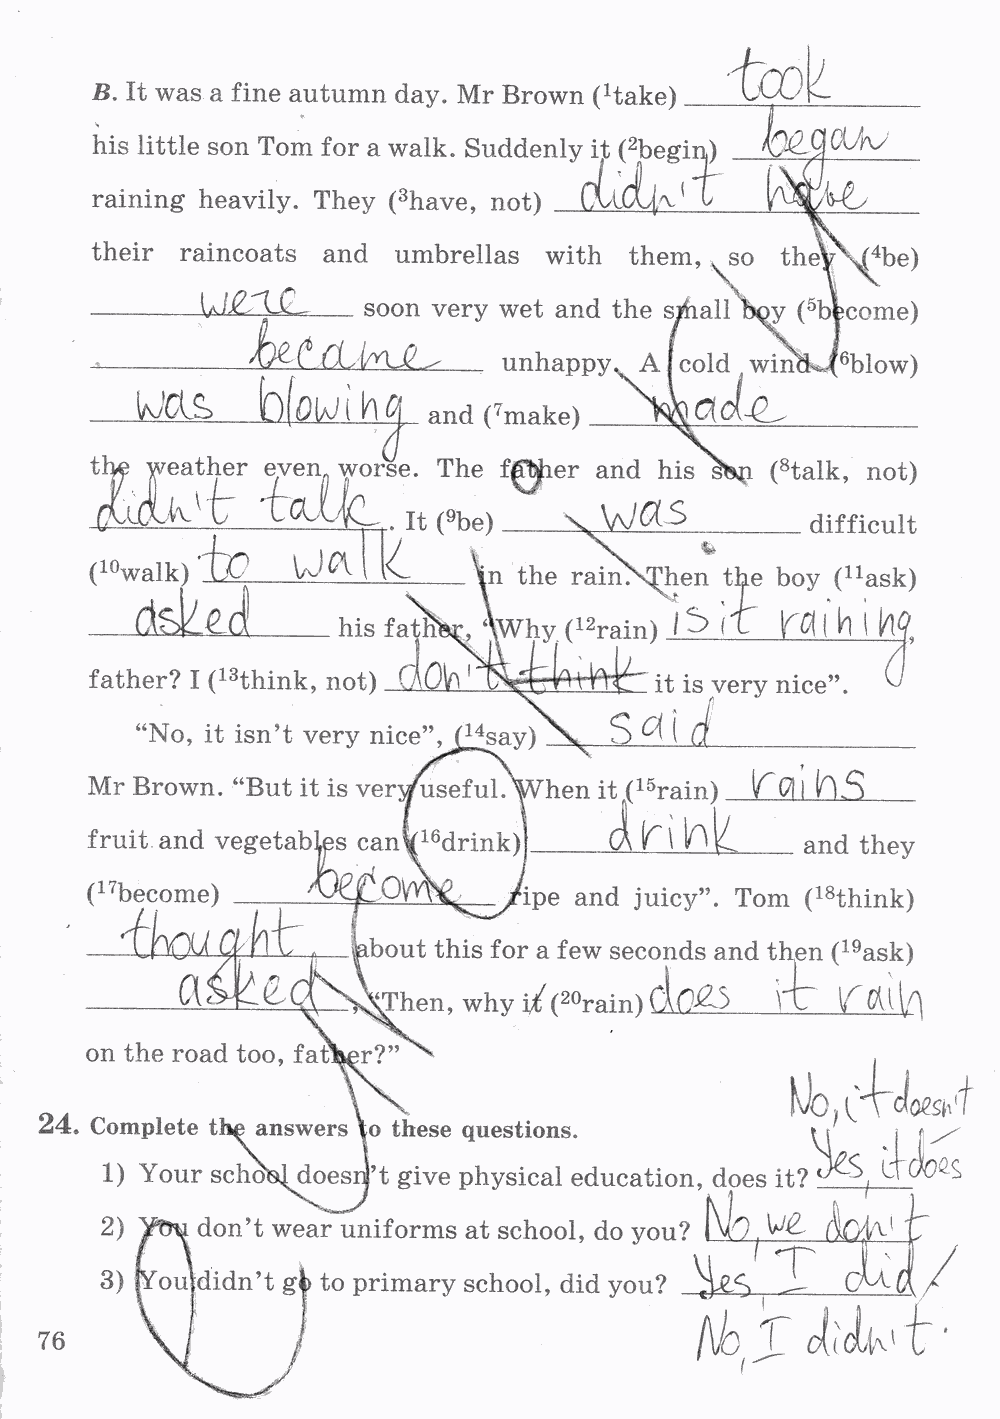 B. It was a fine autumn day. Mr Brown (¹take) took
his little son Tom for a walk. Suddenly it (²begin) began
raining heavily. They (³have, not) didn't have
their raincoats and umbrellas with them, so they (⁴be)
were soon very wet and the small boy (⁵become)
became unhappy. A cold wind (⁶blow)
was blowing and (⁷make) made
the weather even worse. The father and his son (⁸talk, not)
didn't talk. It (⁹be) was difficult
(¹⁰walk) to walk in the rain. Then the boy (¹¹ask)
asked his father, "Why (¹²rain) is it raining,
father? I (¹³think, not) don't think it is very nice".
"No, it isn't very nice", (¹⁴say) said
Mr Brown. "But it is very useful. When it (¹⁵rain) rains
fruit and vegetables can (¹⁶drink) drink and they
(¹⁷become) become ripe and juicy". Tom (¹⁸think)
thought about this for a few seconds and then (¹⁹ask)
asked, "Then, why it (²⁰rain) does it rain
on the road too, father?"
No, it doesn't
24. Complete the answers to these questions.
1) Your school doesn't give physical education, does it? Yes, it does
2) You don't wear uniforms at school, do you? No, we don't
3) You didn't go to primary school, did you? Yes, I did/
No, I didn't.
76